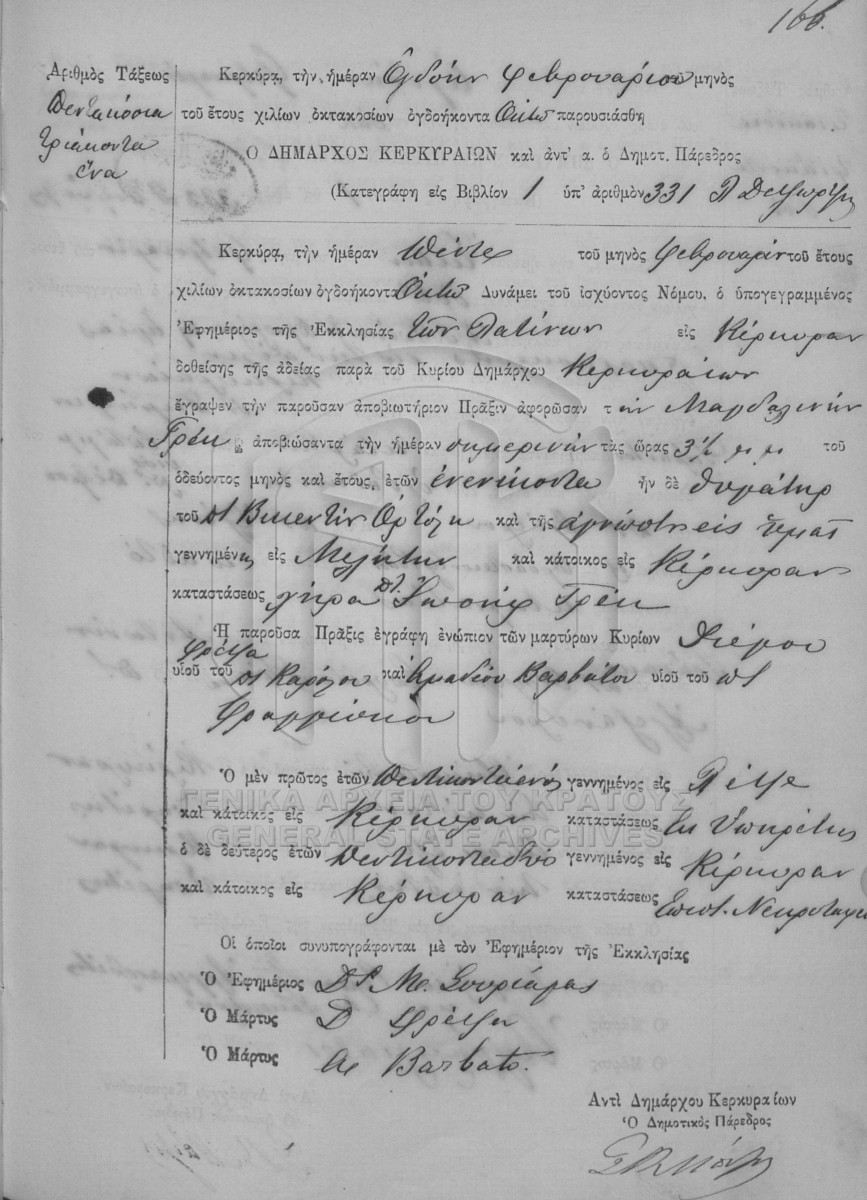 166.
Ἀριθμὸς Τάξεως
Πεντακόσια
τριάκοντα
ἕνα
Κερκύρα, τὴν ἡμέραν Ὀγδόην Φεβρουαρίου τοῦ μηνὸς
τοῦ ἔτους χιλίων ὀκτακοσίων ὀγδοήκοντα Ὀκτὼ παρουσιάσθη
Ο ΔΗΜΑΡΧΟΣ ΚΕΡΚΥΡΑΙΩΝ καὶ ἀντ' α. ὁ Δημοτ. Πάρεδρος
(Κατεγράφη εἰς Βιβλίον 1 ὑπ' ἀριθμὸν 331
Κερκύρα, τὴν ἡμέραν Πέντε τοῦ μηνὸς Φεβρουαρίου τοῦ ἔτους
χιλίων ὀκτακοσίων ὀγδοήκοντα Ὀκτὼ Δυνάμει τοῦ ἰσχύοντος Νόμου, ὁ ὑπογεγραμμένος
Ἐφημέριος τῆς Ἐκκλησίας τῶν Λατίνων εἰς Κέρκυραν
δοθείσης τῆς ἀδείας παρὰ τοῦ Κυρίου Δημάρχου Κερκυραίων
ἔγραψεν τὴν παροῦσαν ἀποβιωτήριον Πρᾶξιν ἀφορῶσαν τ ὴν Μαγδαληνὴν
Γρὲκ ἀποβιώσαντα τὴν ἡμέραν σημερινὴν τὰς ὥρας 3½ μ μ τοῦ
ὁδεύοντος μηνὸς καὶ ἔτους, ἐτῶν ἐνενήκοντα ἦν δὲ θυγάτηρ
τοῦ Βικεντίου καὶ τῆς ἀγνώστη εἰς ἡμᾶς
γεννημένη εἰς Μελήτην καὶ κάτοικος εἰς Κέρκυραν
καταστάσεως χήρα Ἰωσὴφ Γρὲκ
Ἡ παροῦσα Πρᾶξις ἐγράφη ἐνώπιον τῶν μαρτύρων Κυρίων
υἱοῦ τοῦ Καρόλου καὶ Ἀμαδέου Βαρβάτου υἱοῦ τοῦ
Φραγγίσκου
Ὁ μὲν πρῶτος ἐτῶν Πεντήκοντα ἑνὸς γεννημένος εἰς
καὶ κάτοικος εἰς Κέρκυραν καταστάσεως Ὑπηρέτης
ὁ δὲ δεύτερος ἐτῶν Πεντήκοντα δύο γεννημένος εἰς Κέρκυραν
καὶ κάτοικος εἰς Κέρκυραν καταστάσεως
Οἱ ὁποῖοι συνυπογράφονται μὲ τὸν Ἐφημέριον τῆς Ἐκκλησίας
Ὁ Ἐφημέριος
Ὁ Μάρτυς Δ
Ὁ Μάρτυς Barbato.
Αντὶ Δημάρχου Κερκυραίων
Ὁ Δημοτικὸς Πάρεδρος
ΓΕΝΙΚΑ ΑΡΧΕΙΑ ΤΟΥ ΚΡΑΤΟΥΣ
GENERAL STATE ARCHIVES